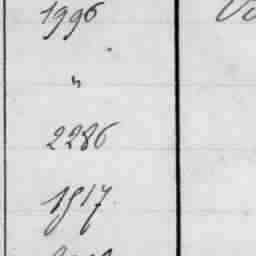 1996
"
2286
1517